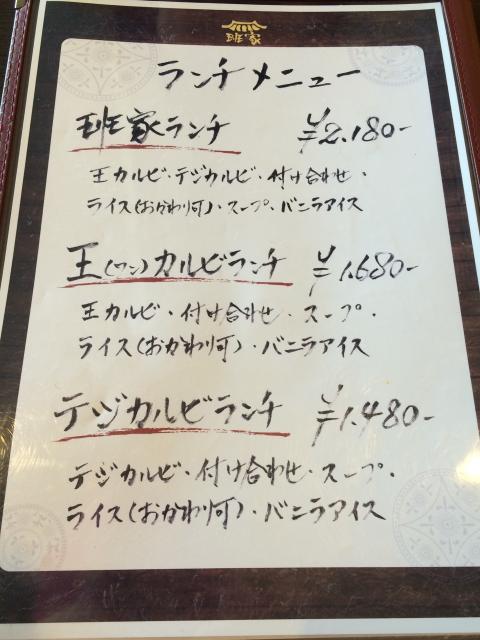 班家
ランチメニュー
班家ランチ ¥2.180-
王カルビ・テジカルビ・付け合わせ・
ライス(おかわり可)・スープ・バニラアイス
王(ワン)カルビランチ ¥1.680-
王カルビ・付け合わせ・スープ・
ライス(おかわり可)・バニラアイス
テジカルビランチ ¥1.480-
テジカルビ・付け合わせ・スープ・
ライス(おかわり可)・バニラアイス